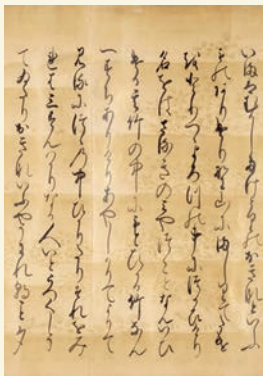 いまはむかしたけとりのおきなといふ
ものありけり野山にましりてたけを
とりつゝよろつの事につかひけり
名をはさるきのみやつことなんいひ
ける其竹の中にもとひかる竹なん
一すちありけりあやしかりてよりて
見るにつゝの中ひかりたりそれをみ
れは三すんはかりなる人いとうつくしう
てゐたりおきないふやうわれ朝こと夕